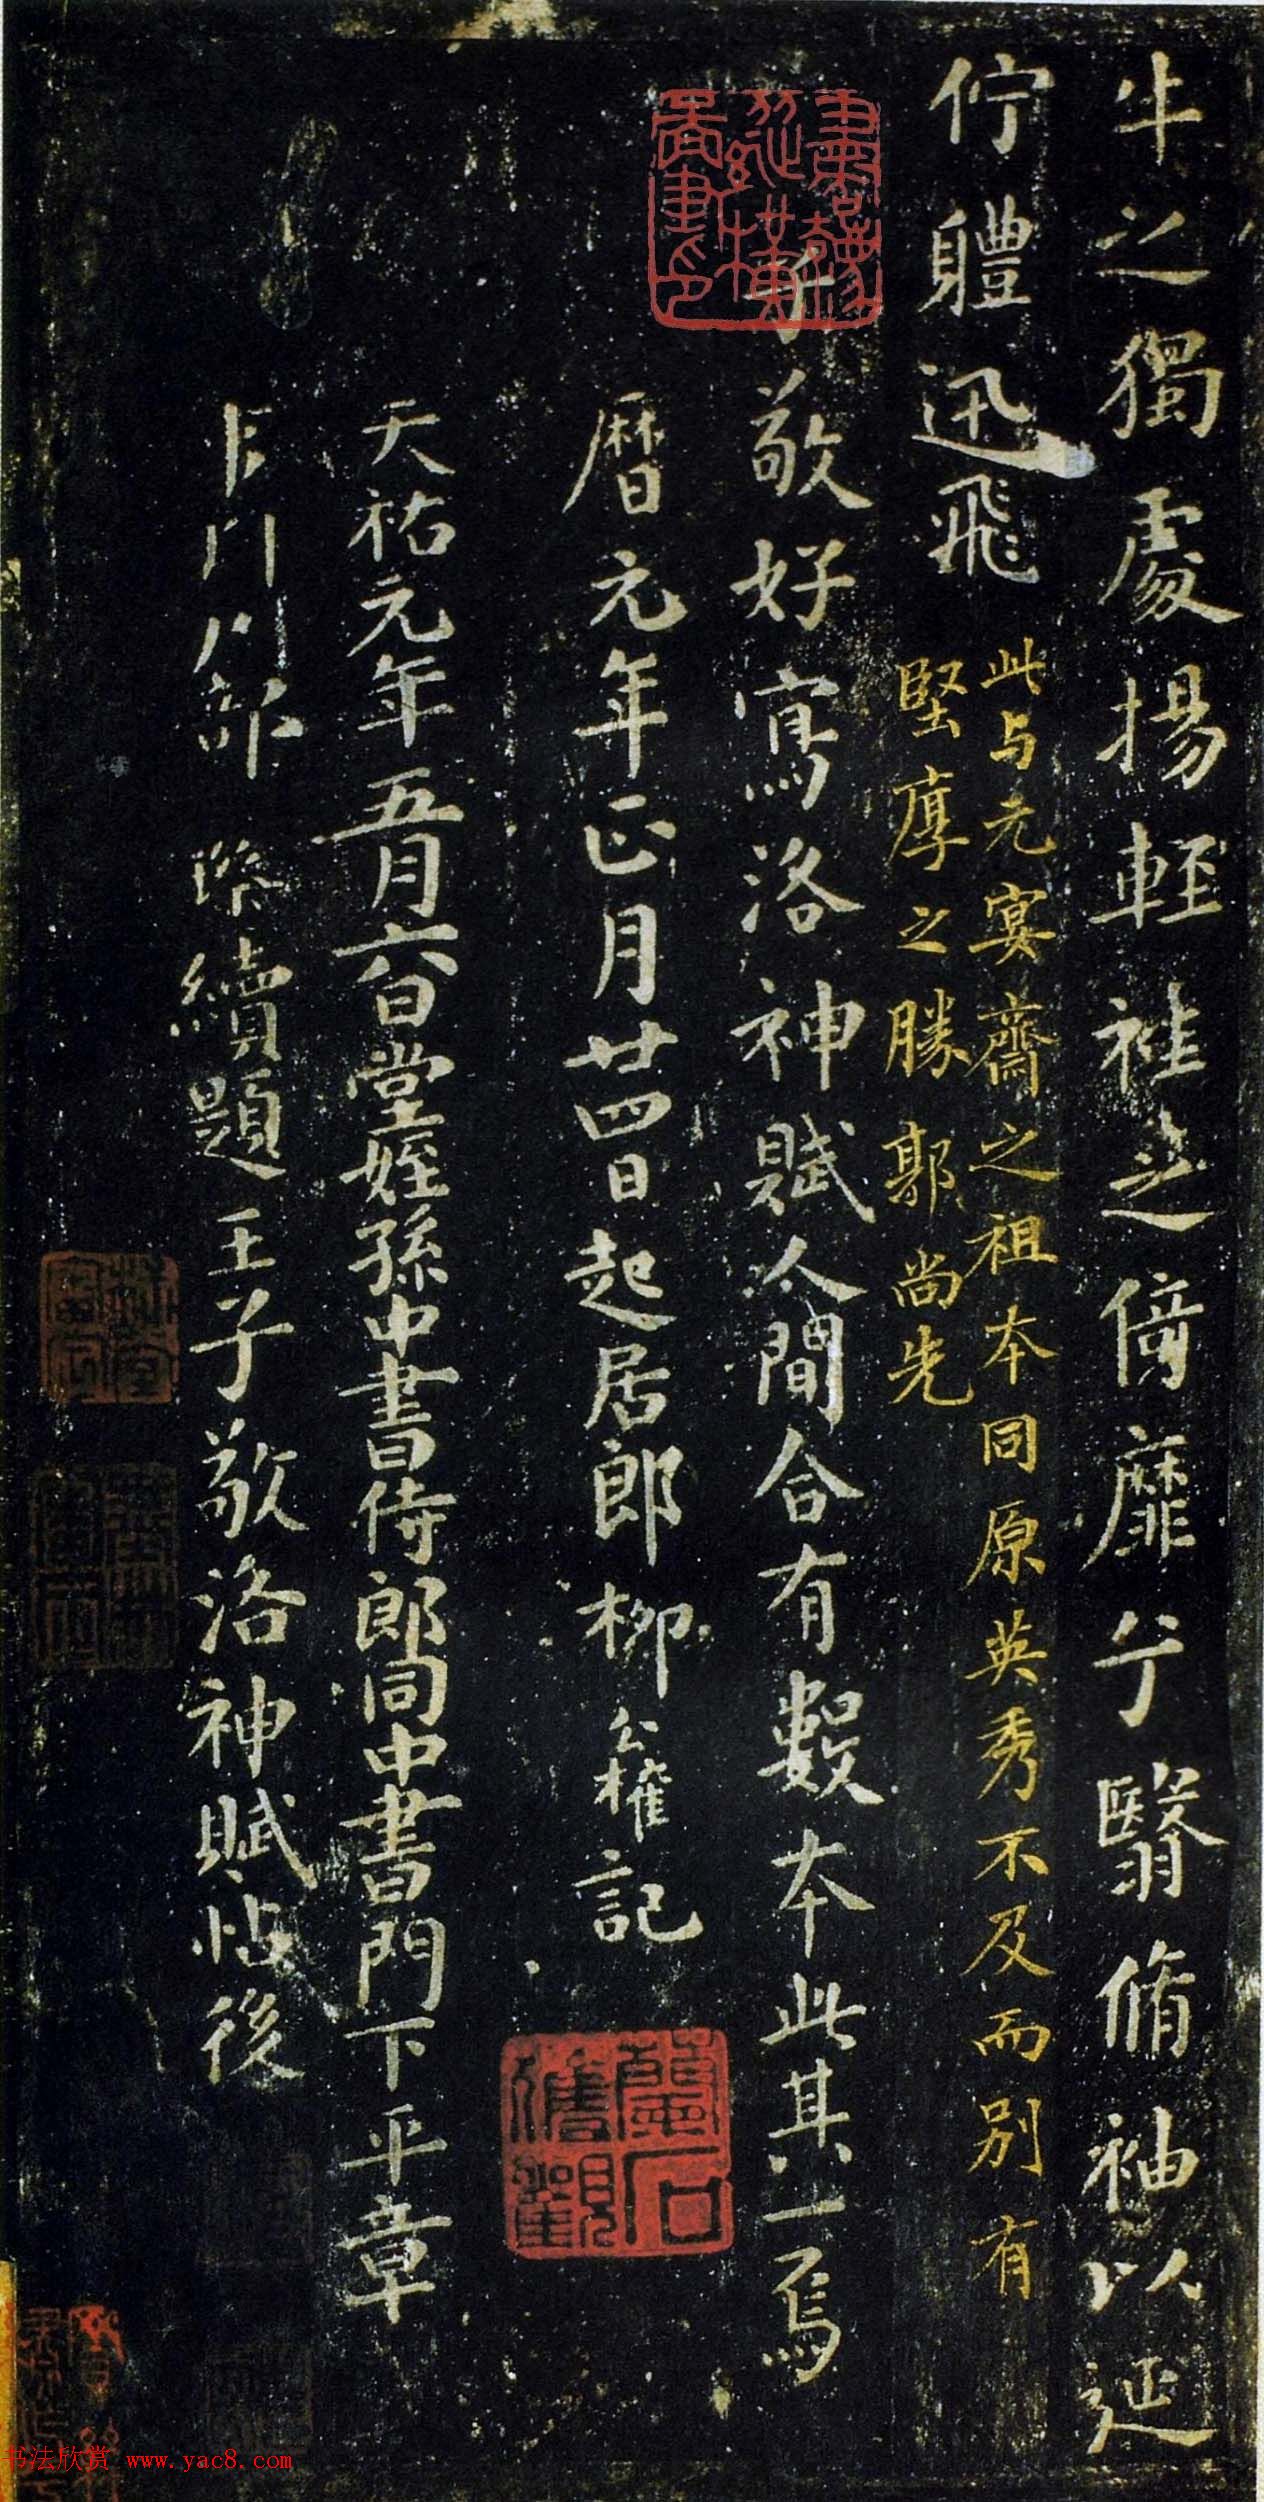 牛之獨處揚輕袿之倚靡兮翳脩袖以延
佇軆迅飛
此与元宴齋之祖本同原英秀不及而別有
堅厚之勝郭尚先
子敬好寫洛神賦人間合有數本此其一焉
曆元年正月廿四日起居郎柳公權記
天祐元年五月六日堂姪孫中書侍郎同中書門下平章
續題王子敬洛神賦帖後
書法欣赏 www.yac8.com